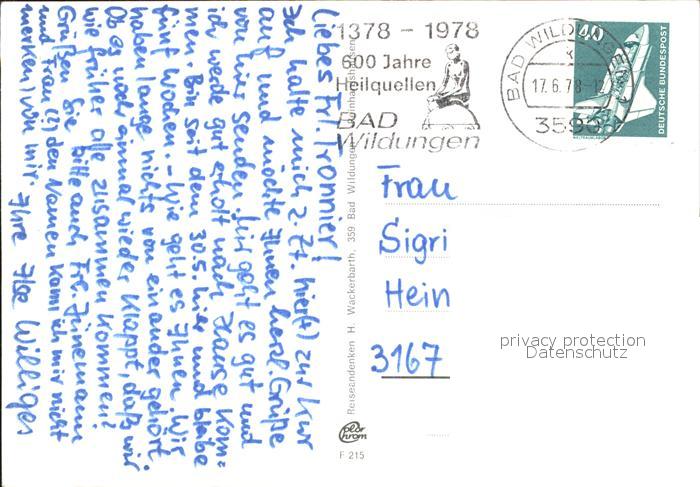 Liebes Frl. Tronnier!
Ich halte mich z. Zt. hier(t) zur Kur
auf und möchte Ihnen herzl. Grüße
von hier senden. Mir geht es gut und
ich werde gut erholt nach Hause kom-
men. Bin seit dem 30.5. hier und bleibe
fünf Wochen. - Wie geht es Ihnen. Wir
haben lange nichts von einander gehört.
Ob es noch einmal wieder klappt, daß wir
wie früher alle zusammen kommen?
Grüßen Sie bitte auch Frl. Jünemann
und Frau (?) den Namen kann ich mir nicht
merken) von mir. Ihre Ilse Williges
1378 - 1978
600 Jahre
Heilquellen
BAD
Wildungen
BAD WILDUNGEN
17.6.78-12
3590
40
DEUTSCHE BUNDESPOST
WELTRAUMLABOR
Frau
Sigri
Hein
3167
privacy protection
Datenschutz
Reiseandenken H. Wackerbarth, 359 Bad Wildungen
F 215